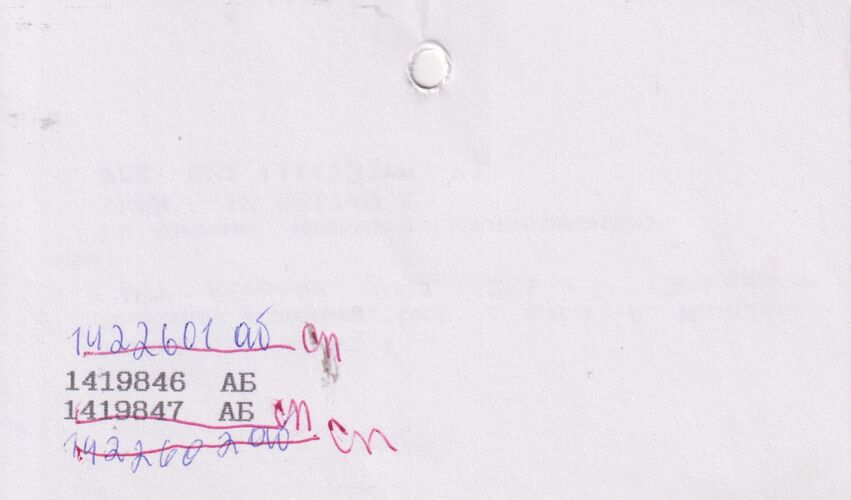 1422601 аб сп
1419846 АБ
1419847 АБ сп
1422602 аб сп